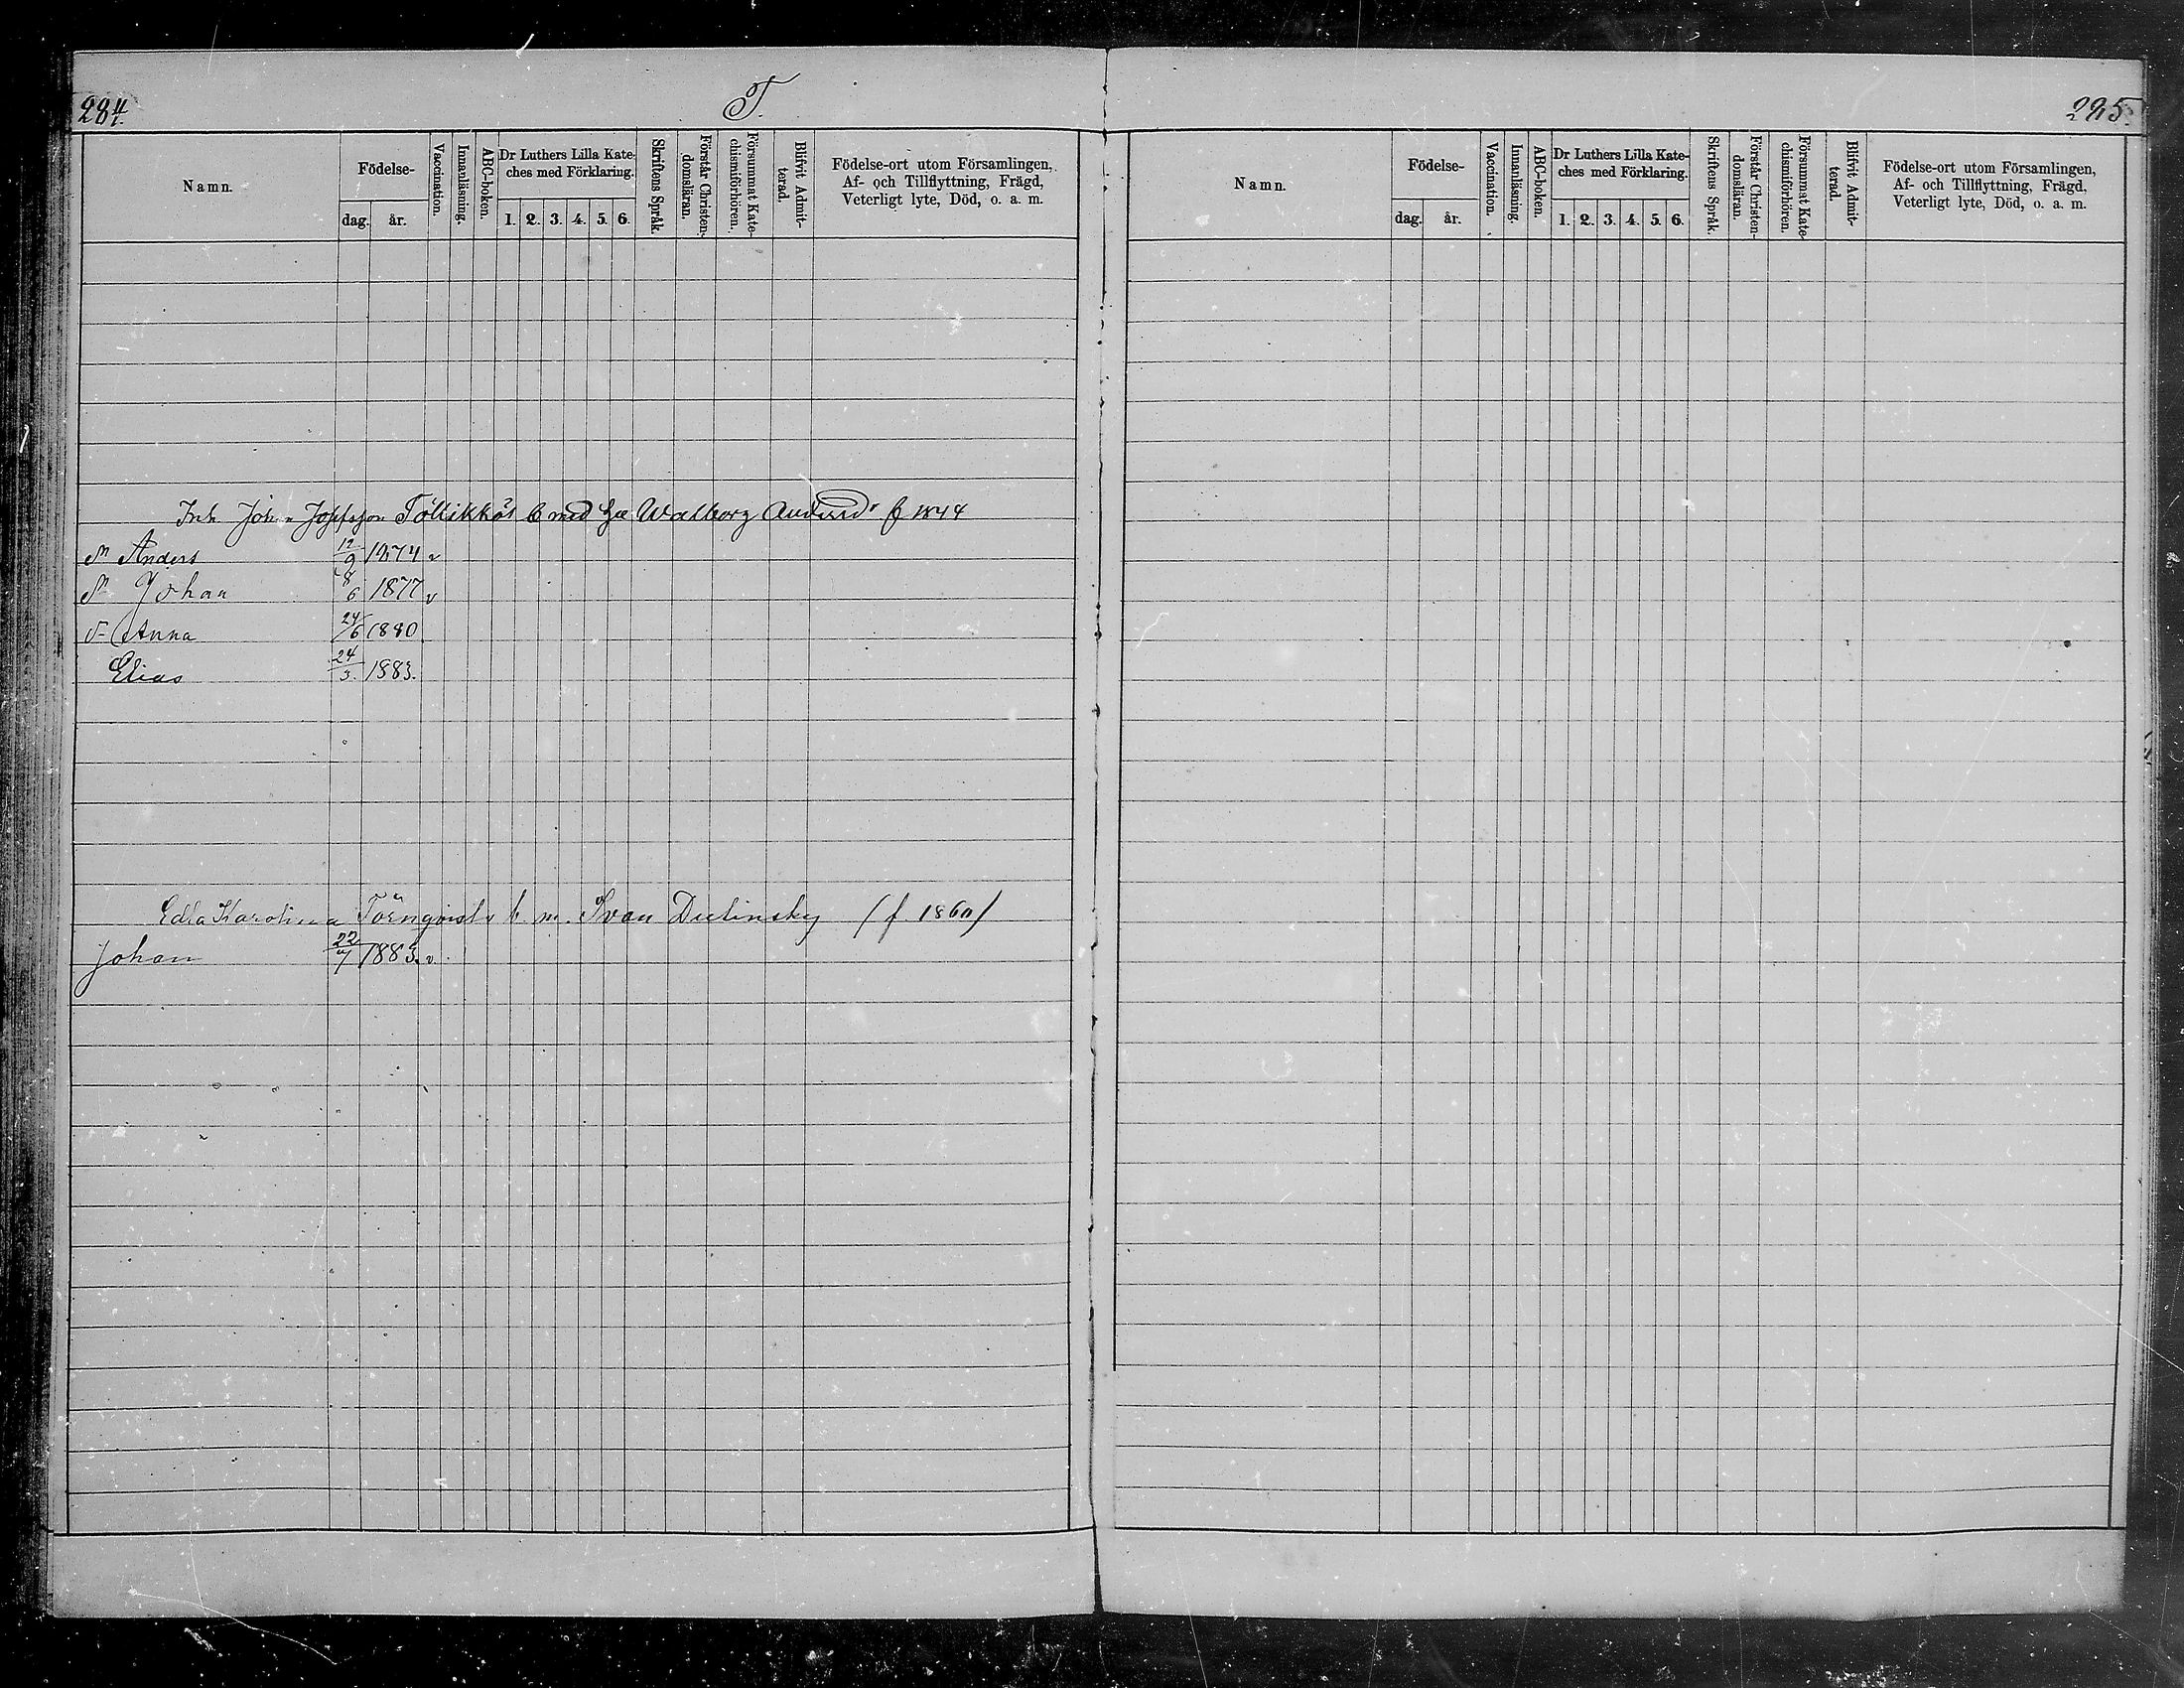 284.
T.
Namn.
Födelse-
dag. år.
Vaccination.
Innanläsning.
ABC-boken.
Dr Luthers Lilla Kate-
ches med Förklaring.
1. 2. 3. 4. 5. 6.
Skriftens Språk.
Förstår Christen-
domsläran.
Försummat Kate-
chismiförhören.
Blifvit Admit-
terad.
Födelse-ort utom Församlingen,
Af- och Tillflyttning, Frägd,
Veterligt lyte, Död, o. a. m.
Inh. Joh. Josefsson Töllikkös med Walborg f 1844
Anders 12/9 1874 v
Johan 8/6 1877 v
Anna 24/6 1880
Elias 24/3. 1883.
Edla Karolina Törnqvist m. Ivan (f 1860)
Johan 22/7 1883. v.
285.
Namn.
Födelse-
dag. år.
Vaccination.
Innanläsning.
ABC-boken.
Dr Luthers Lilla Kate-
ches med Förklaring.
1. 2. 3. 4. 5. 6.
Skriftens Språk.
Förstår Christen-
domsläran.
Försummat Kate-
chismiförhören.
Blifvit Admit-
terad.
Födelse-ort utom Församlingen,
Af- och Tillflyttning, Frägd,
Veterligt lyte, Död, o. a. m.